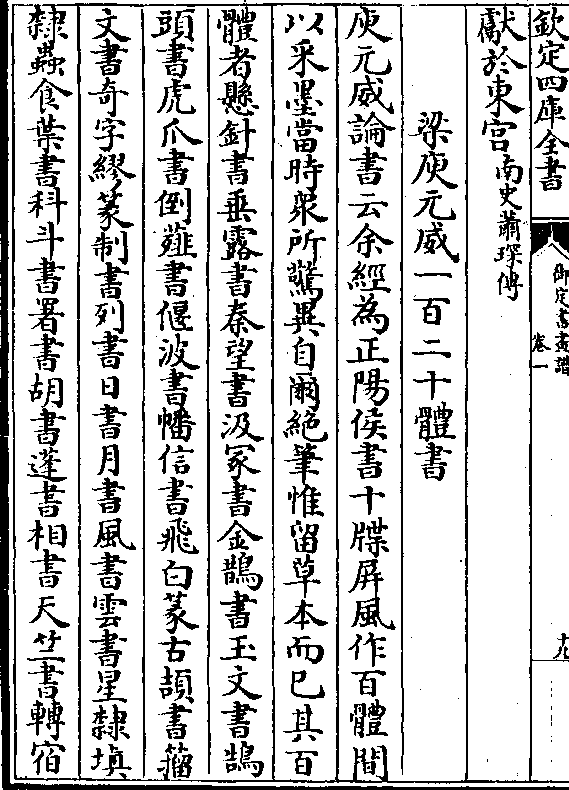 欽定四庫全書
御定書畫譜
卷一
十九
獻於東宮南史蕭琛傳
梁庾元威一百二十體書
庾元威論書云余經為正陽侯書十牒屏風作百體間
以采墨當時衆所驚異自爾絕筆惟留草本而已其百
體者懸針書垂露書秦望書汲冢書金鵲書玉文書鵠
頭書虎爪書倒薤書偃波書幡信書飛白篆古頡書籀
文書奇字繆篆制書列書日書月書風書雲書星隸填
隸蟲食葉書科斗書署書胡書蓬書相書天竺書轉宿